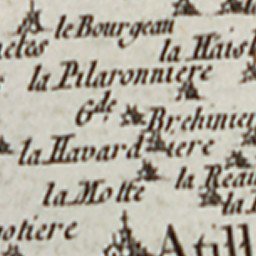 le Bourgeau
la Pilaronniere
Gde Brehinier
la Havardiere
la Motte
la Reau
otiere
Atill